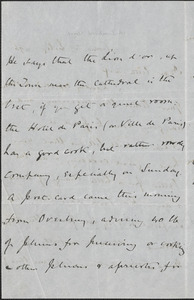 He says that the Lion d'or, up
the Town near the Cathedral is the
best, if you get a quiet room.
the Hotel de Paris (or Ville de Paris)
has a good cook, but rather rowdy
Company, especially on Sunday.
A Post card came this morning
from Overbury, advising
of for preserving or cooking
other &